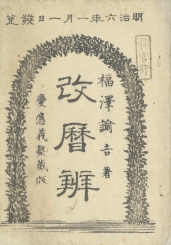 明治六年一月一日發兌
福澤諭吉著
改曆辨
慶應義塾藏版